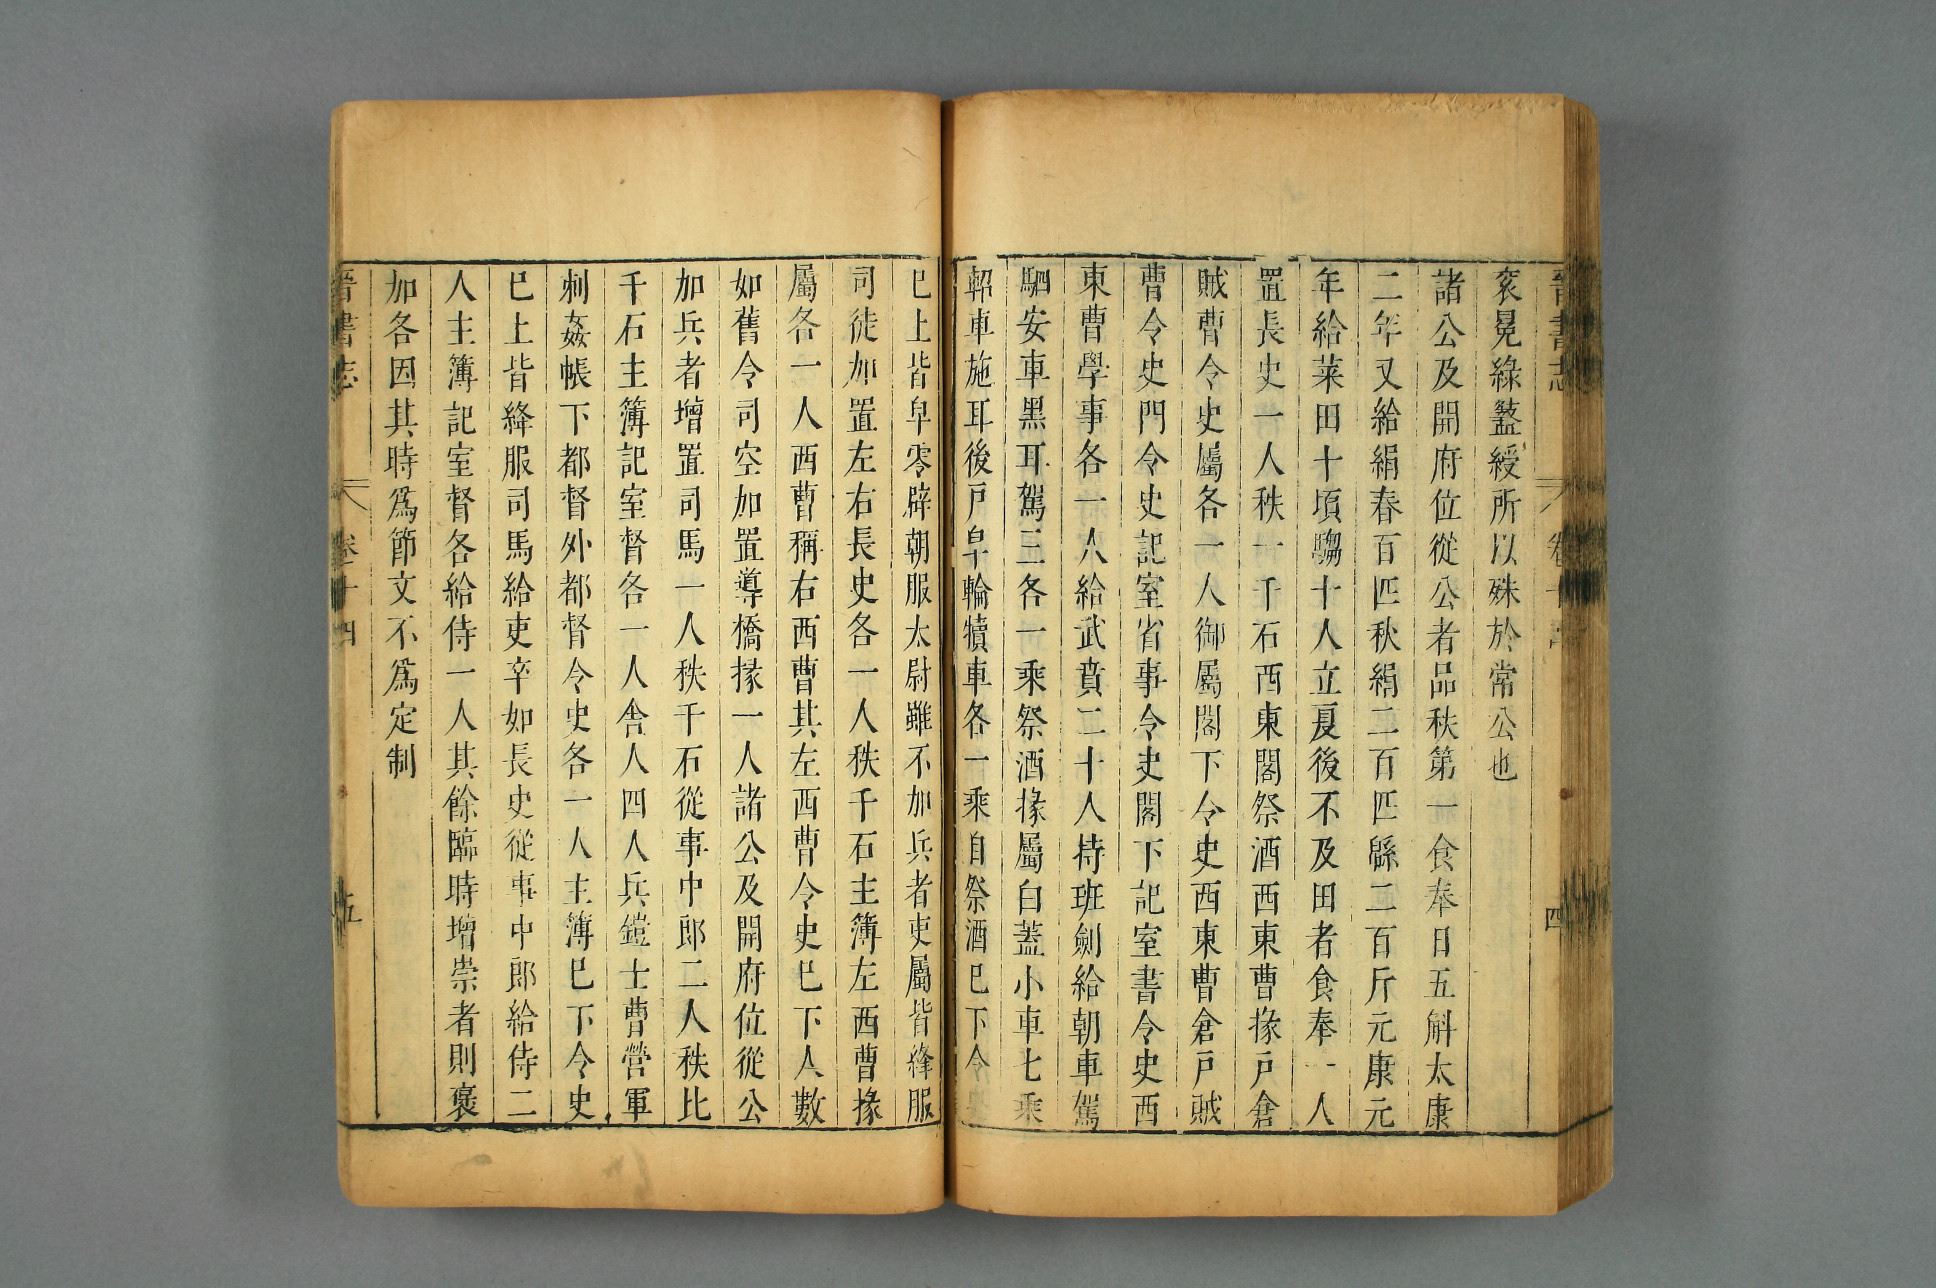 晉書志 卷十四 四
袞冕綠盭綬所以殊於常公也
諸公及開府位從公者品秩第一食奉日五斛太康
二年又給絹春百匹秋絹二百匹緜二百斤元康元
年給菜田十頃騶十人立夏後不及田者食奉一人
置長史一人秩一千石西東閤祭酒西東曹掾戶倉
賊曹令史屬各一人御屬閤下令史西東曹倉戶賊
曹令史門令史記室省事令史閤下記室書令史西
東曹學事各一人給武賁二十人持班劍給朝車駕
駟安車黑耳駕三各一乘祭酒掾屬白蓋小車七乘
軺車施耳後戶皁輪犢車各一乘自祭酒巳下令
巳上皆皁零辟朝服太尉雖不加兵者吏屬皆絳服
司徒加置左右長史各一人秩千石主簿左西曹掾
屬各一人西曹稱右西曹其左西曹令史巳下人數
如舊令司空加置導橋掾一人諸公及開府位從公
加兵者增置司馬一人秩千石從事中郎二人秩比
千石主簿記室督各一人舍人四人兵鎧士曹營軍
刺姦帳下都督外都督令史各一人主簿巳下令史
巳上皆絳服司馬給吏卒如長史從事中郎給侍二
人主簿記室督各給侍一人其餘臨時增崇者則褒
加各因其時爲節文不爲定制
晉書志 卷十四 五